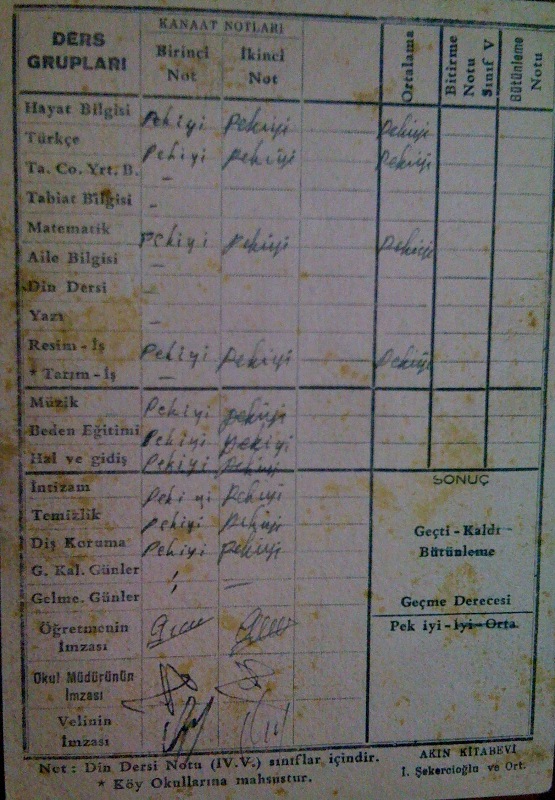 DERS GRUPLARI KANAAT NOTLARI Ortalama Bitirme Notu Sınıf V Bütünleme Notu
Birinci Not İkinci Not
Hayat Bilgisi Pekiyi Pekiyi Pekiyi
Türkçe Pekiyi Pekiyi Pekiyi
Ta. Co. Yrt. B. —
Tabiat Bilgisi —
Matematik Pekiyi Pekiyi Pekiyi
Aile Bilgisi —
Din Dersi —
Yazı —
Resim - İş Pekiyi Pekiyi Pekiyi
* Tarım - İş —
Müzik Pekiyi Pekiyi
Beden Eğitimi Pekiyi Pekiyi
Hal ve gidiş Pekiyi Pekiyi
İntizam Pekiyi Pekiyi
Temizlik Pekiyi Pekiyi
Diş Koruma Pekiyi Pekiyi
G. Kal. Günler —
Gelme. Günler
Öğretmenin İmzası
Okul Müdürünün İmzası
Velinin İmzası
SONUÇ
Geçti - Kaldı
Bütünleme
Geçme Derecesi
Pek iyi - İyi - Orta.
Not : Din Dersi Notu (IV.V.) sınıflar içindir.
* Köy Okullarına mahsustur.
AKIN KİTABEVİ
İ. Şekercioğlu ve Ort.